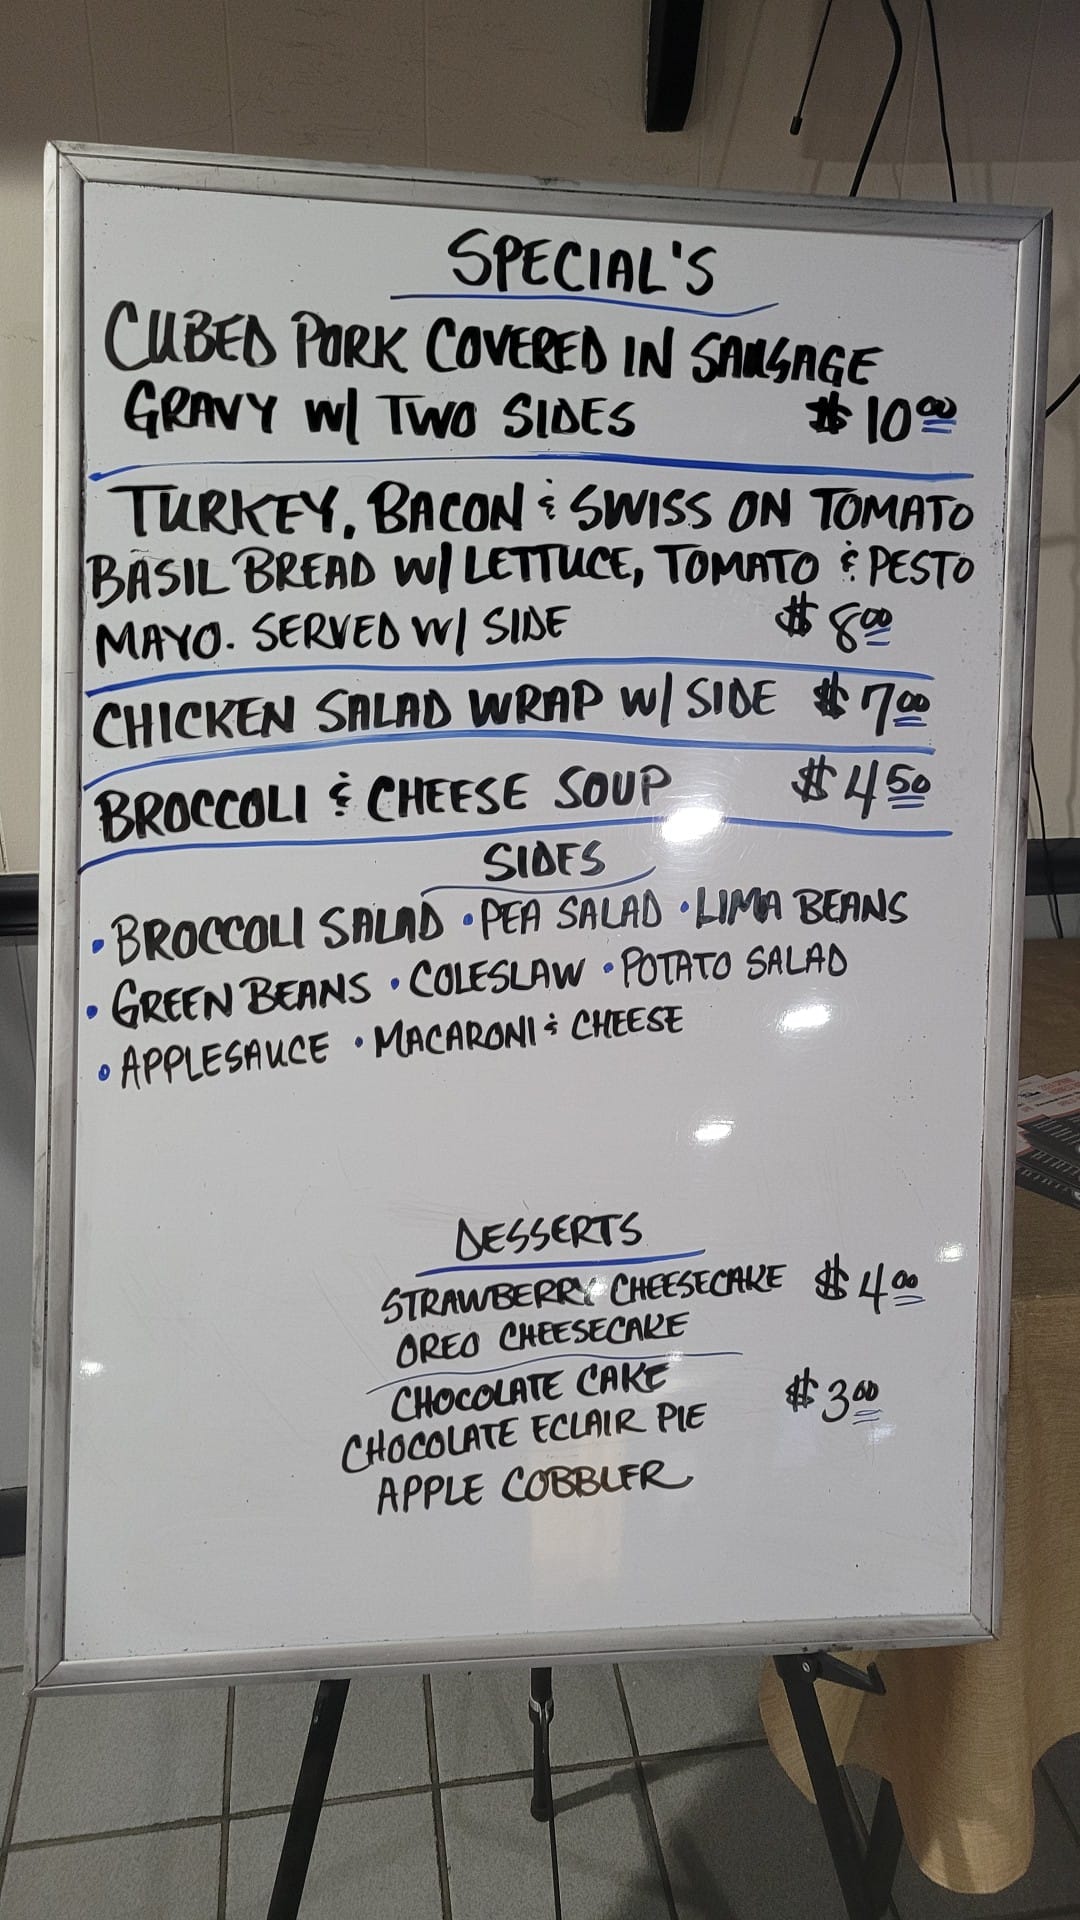 SPECIAL'S
CUBED PORK COVERED IN SAUSAGE
GRAVY W/ TWO SIDES $10.00
TURKEY, BACON & SWISS ON TOMATO
BASIL BREAD W/ LETTUCE, TOMATO & PESTO
MAYO. SERVED W/ SIDE $8.00
CHICKEN SALAD WRAP W/ SIDE $7.00
BROCCOLI & CHEESE SOUP $4.50
SIDES
• BROCCOLI SALAD • PEA SALAD • LIMA BEANS
• GREEN BEANS • COLESLAW • POTATO SALAD
• APPLESAUCE • MACARONI & CHEESE
DESSERTS
STRAWBERRY CHEESECAKE $4.00
OREO CHEESECAKE
CHOCOLATE CAKE $3.00
CHOCOLATE ECLAIR PIE
APPLE COBBLER